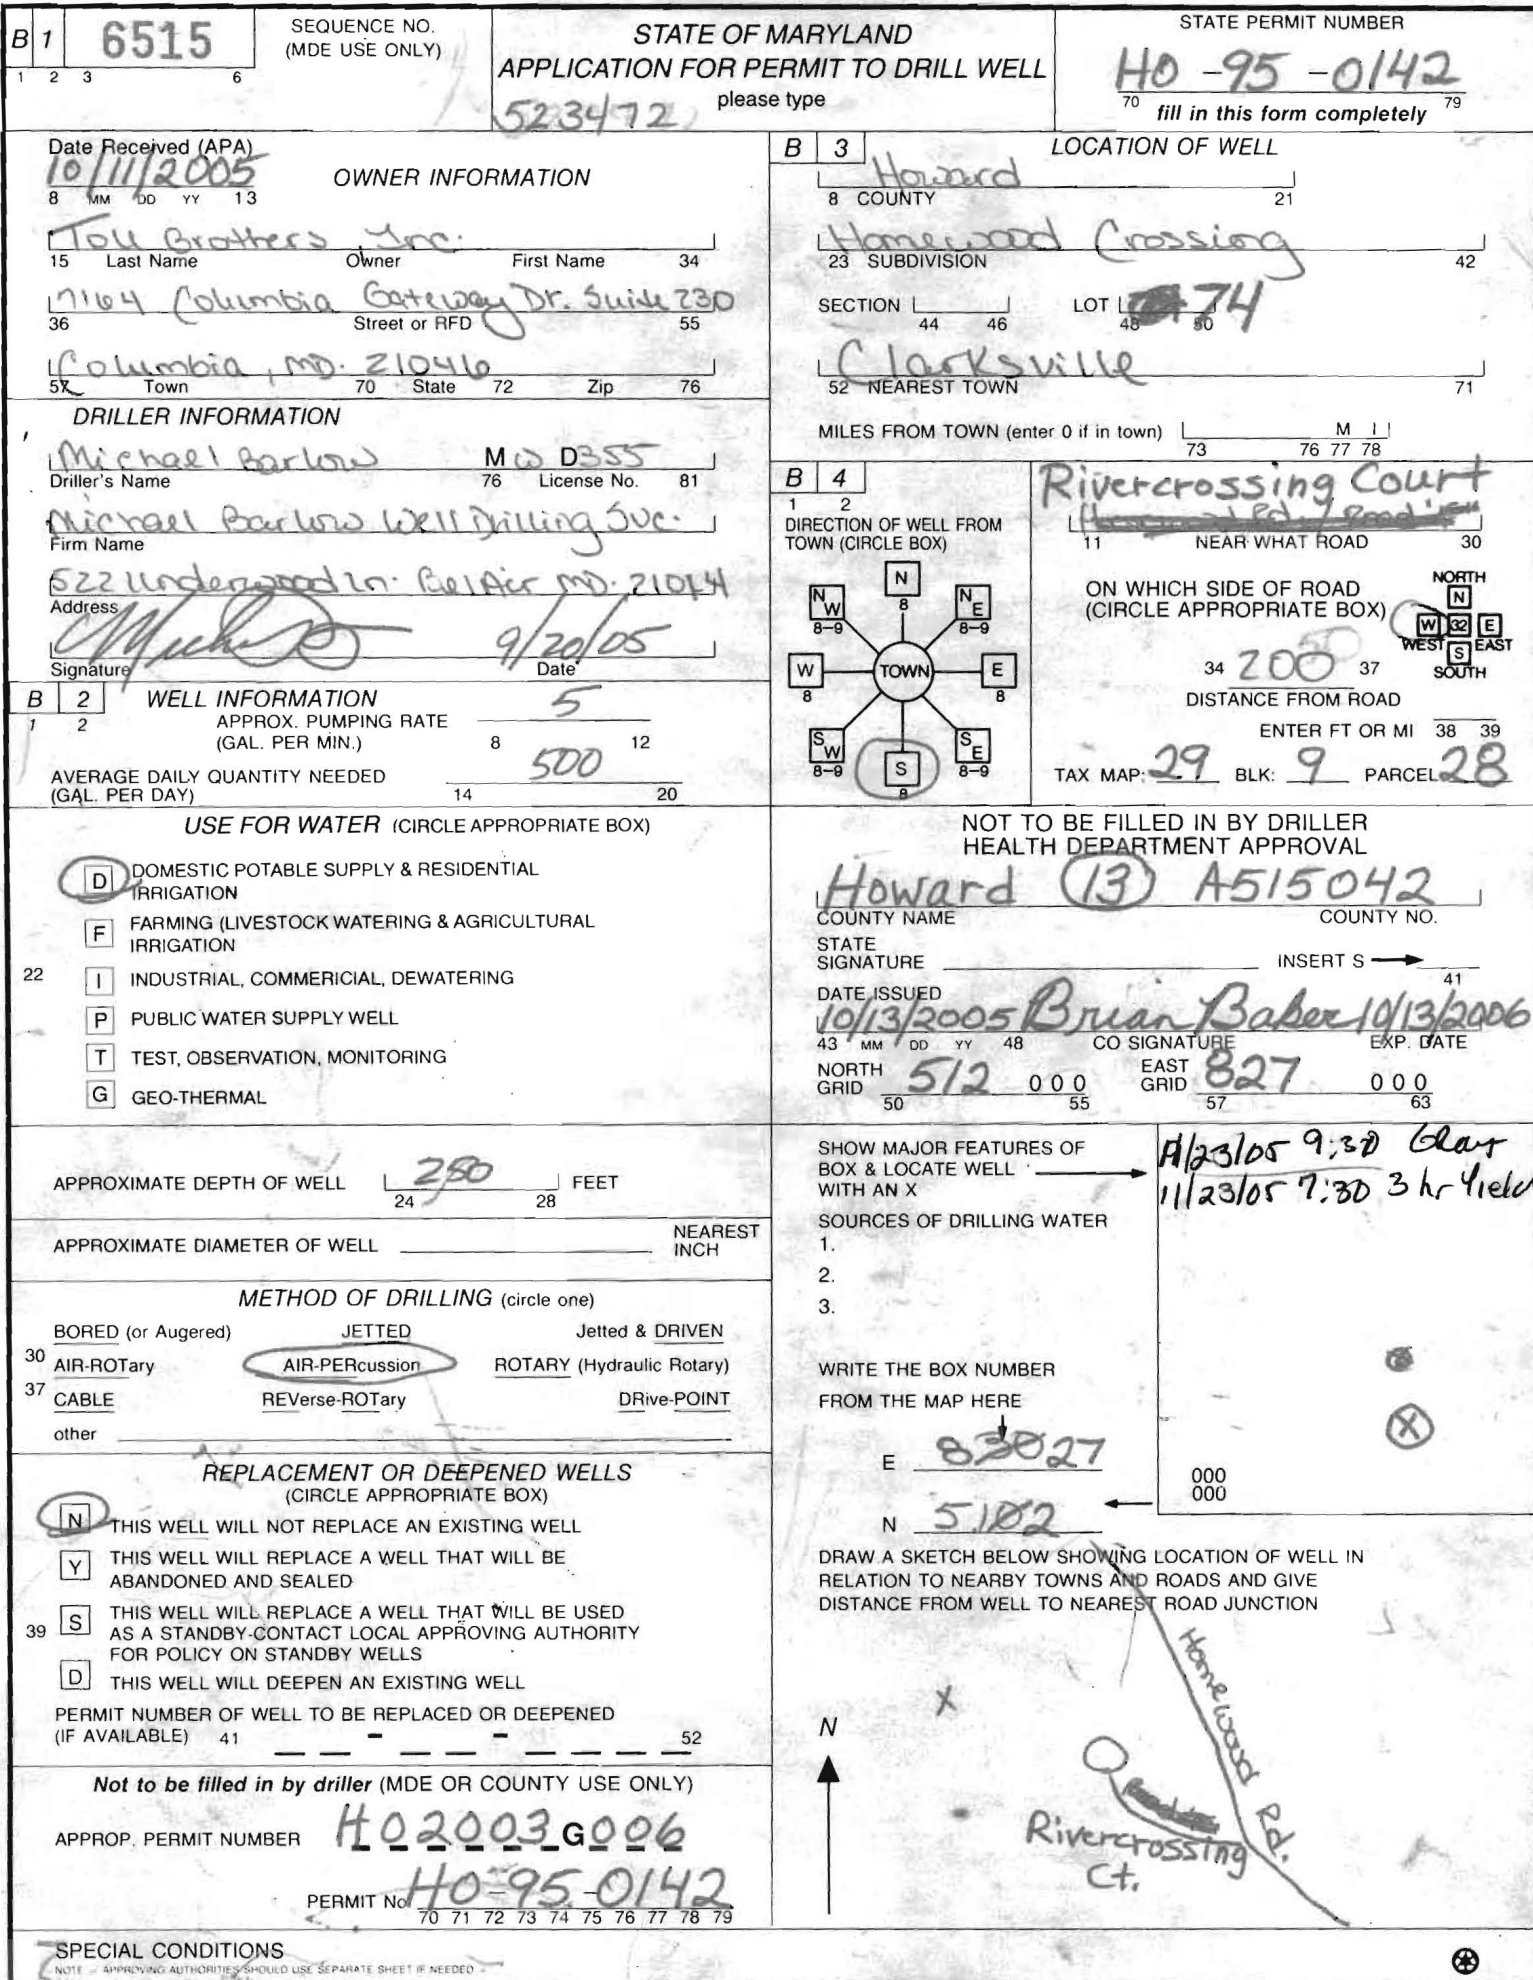 B 1 6515
1 2 3 6
SEQUENCE NO.
(MDE USE ONLY)
STATE OF MARYLAND
APPLICATION FOR PERMIT TO DRILL WELL
please type
523472
STATE PERMIT NUMBER
HO -95 -0142
70 79
fill in this form completely
Date Received (APA)
10/11/2005
8 MM DD YY 13
OWNER INFORMATION
Toll Brothers, Inc.
15 Last Name Owner First Name 34
7164 Columbia Gateway Dr. Suite 230
36 Street or RFD 55
Columbia, MD. 21046
57 Town 70 State 72 Zip 76
DRILLER INFORMATION
Michael Barlow MW D355
Driller's Name 76 License No. 81
Michael Barlow Well Drilling Svc.
Firm Name
522 Underwood Ln. Bel Air MD. 21014
Address
9/20/05
Signature Date
B 2 WELL INFORMATION
1 2
APPROX. PUMPING RATE 5
(GAL. PER MIN.) 8 12
AVERAGE DAILY QUANTITY NEEDED 500
(GAL. PER DAY) 14 20
USE FOR WATER (CIRCLE APPROPRIATE BOX)
D DOMESTIC POTABLE SUPPLY & RESIDENTIAL
IRRIGATION
F FARMING (LIVESTOCK WATERING & AGRICULTURAL
IRRIGATION
22
I INDUSTRIAL, COMMERICIAL, DEWATERING
P PUBLIC WATER SUPPLY WELL
T TEST, OBSERVATION, MONITORING
G GEO-THERMAL
APPROXIMATE DEPTH OF WELL 250 FEET
24 28
APPROXIMATE DIAMETER OF WELL NEAREST
INCH
METHOD OF DRILLING (circle one)
BORED (or Augered) JETTED Jetted & DRIVEN
30 AIR-ROTary AIR-PERcussion ROTARY (Hydraulic Rotary)
37 CABLE REVerse-ROTary DRive-POINT
other
REPLACEMENT OR DEEPENED WELLS
(CIRCLE APPROPRIATE BOX)
N THIS WELL WILL NOT REPLACE AN EXISTING WELL
Y THIS WELL WILL REPLACE A WELL THAT WILL BE
ABANDONED AND SEALED
39 S THIS WELL WILL REPLACE A WELL THAT WILL BE USED
AS A STANDBY-CONTACT LOCAL APPROVING AUTHORITY
FOR POLICY ON STANDBY WELLS
D THIS WELL WILL DEEPEN AN EXISTING WELL
PERMIT NUMBER OF WELL TO BE REPLACED OR DEEPENED
(IF AVAILABLE) 41 - - 52
Not to be filled in by driller (MDE OR COUNTY USE ONLY)
APPROP. PERMIT NUMBER HO2003G006
PERMIT No. HO-95-0142
70 71 72 73 74 75 76 77 78 79
SPECIAL CONDITIONS
NOTE - APPROVING AUTHORITIES SHOULD USE SEPARATE SHEET IF NEEDED -
B 3 LOCATION OF WELL
Howard
8 COUNTY 21
Homewood Crossing
23 SUBDIVISION 42
SECTION LOT 74
44 46 48 50
Clarksville
52 NEAREST TOWN 71
MILES FROM TOWN (enter 0 if in town) M I
73 76 77 78
B 4
1 2
DIRECTION OF WELL FROM
TOWN (CIRCLE BOX)
N
8
NW NE
8-9 8-9
W TOWN E
8 8
SW SE
8-9 8-9
S
8
Rivercrossing Court
11 NEAR WHAT ROAD 30
ON WHICH SIDE OF ROAD
(CIRCLE APPROPRIATE BOX)
NORTH
N
W 32 E
WEST S EAST
SOUTH
34 200 37
DISTANCE FROM ROAD
ENTER FT OR MI 38 39
TAX MAP: 29 BLK: 9 PARCEL 28
NOT TO BE FILLED IN BY DRILLER
HEALTH DEPARTMENT APPROVAL
Howard (13) A515042
COUNTY NAME COUNTY NO.
STATE
SIGNATURE INSERT S
41
DATE ISSUED
10/13/2005 Brian Baker 10/13/2006
43 MM DD YY 48 CO SIGNATURE EXP. DATE
NORTH GRID 512 000 EAST GRID 827 000
50 55 57 63
SHOW MAJOR FEATURES OF
BOX & LOCATE WELL
WITH AN X
11/23/05 9:30
11/23/05 7:30 3 hr Yield
SOURCES OF DRILLING WATER
1.
2.
3.
WRITE THE BOX NUMBER
FROM THE MAP HERE
E 83027
N 5102
X
000
000
DRAW A SKETCH BELOW SHOWING LOCATION OF WELL IN
RELATION TO NEARBY TOWNS AND ROADS AND GIVE
DISTANCE FROM WELL TO NEAREST ROAD JUNCTION
Homewood Rd.
X
N
Rivercrossing
Ct.